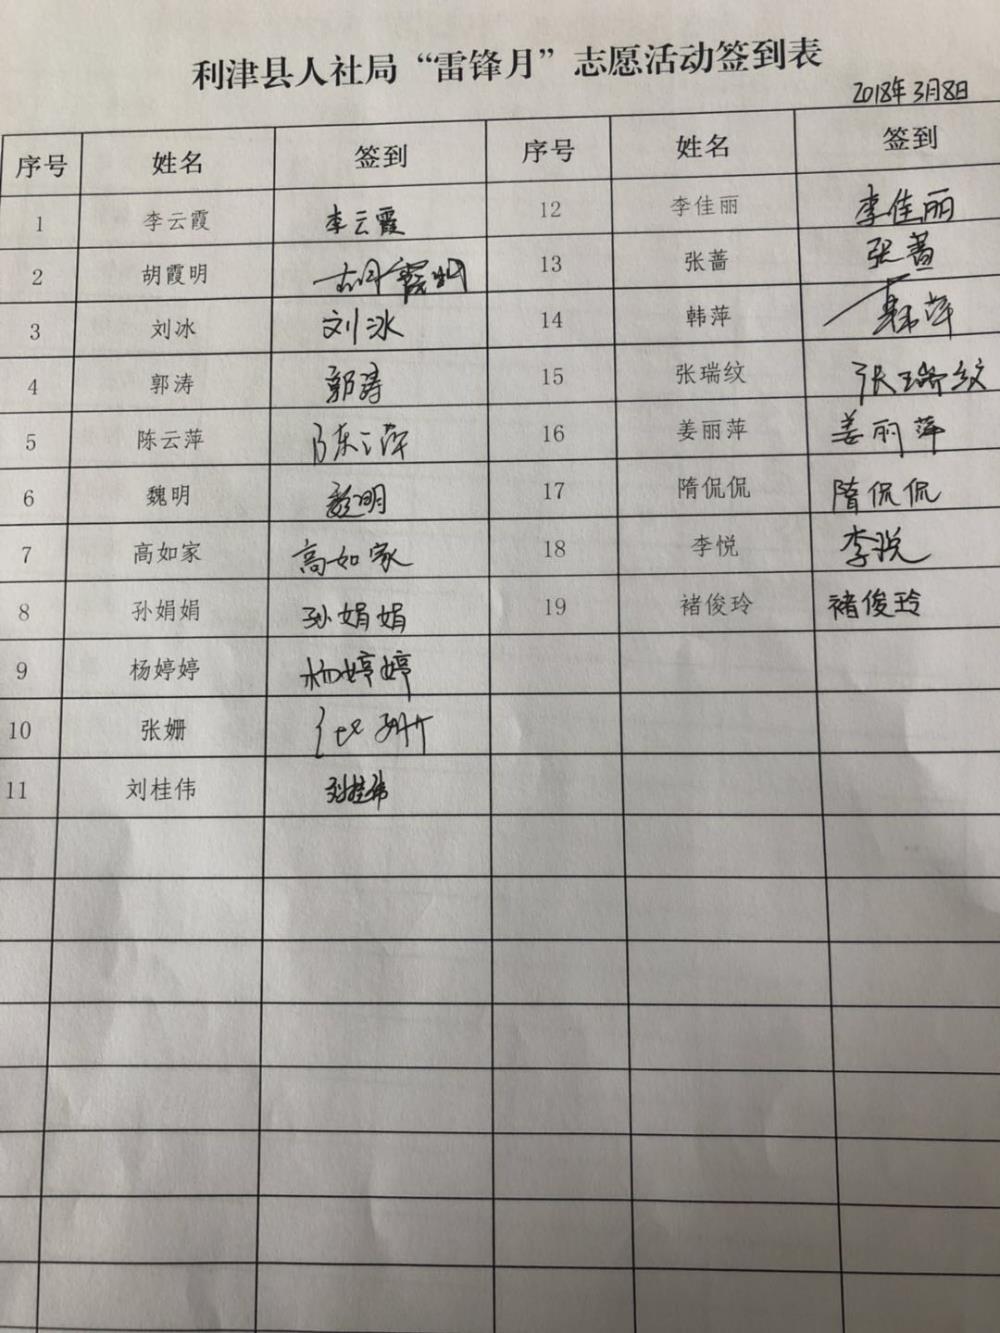 利津县人社局“雷锋月”志愿活动签到表
2018年3月8日
序号 姓名 签到 序号 姓名 签到
1 李云霞 李云霞 12 李佳丽 李佳丽
2 胡霞明 胡霞明 13 张蔷 张蔷
3 刘冰 刘冰 14 韩萍 韩萍
4 郭涛 郭涛 15 张瑞纹 张瑞纹
5 陈云萍 陈云萍 16 姜丽萍 姜丽萍
6 魏明 魏明 17 隋侃侃 隋侃侃
7 高如家 高如家 18 李悦 李悦
8 孙娟娟 孙娟娟 19 褚俊玲 褚俊玲
9 杨婷婷 杨婷婷
10 张姗 张姗
11 刘桂伟 刘桂伟